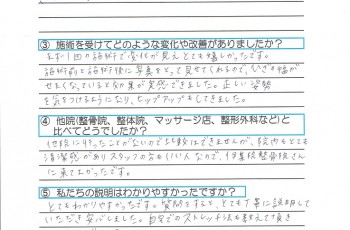 ③ 施術を受けてどのような変化や改善がありましたか？
まだ1回の施術で変化が見えとても嬉しかったです。
施術前と施術後に写真をとって見せてくれるので、いざ幅が
せまくなっていると効果が実感できました。正しい姿勢
を気をつけるようになり、ヒップアップもしてきました。
④ 他院(整骨院、整体院、マッサージ店、整形外科など)と
比べてどうでしたか？
他院に行ったことがないので比較はできませんが、院内もとても
清潔感がありスタッフの方もいい人なので、伊集院整骨院さん
に来てよかったです。
⑤ 私たちの説明はわかりやすかったですか？
とてもわかりやすかったです。質問をすると、とても丁寧に説明して
いただき安心しました。自宅でのストレッチ法も教えて頂き